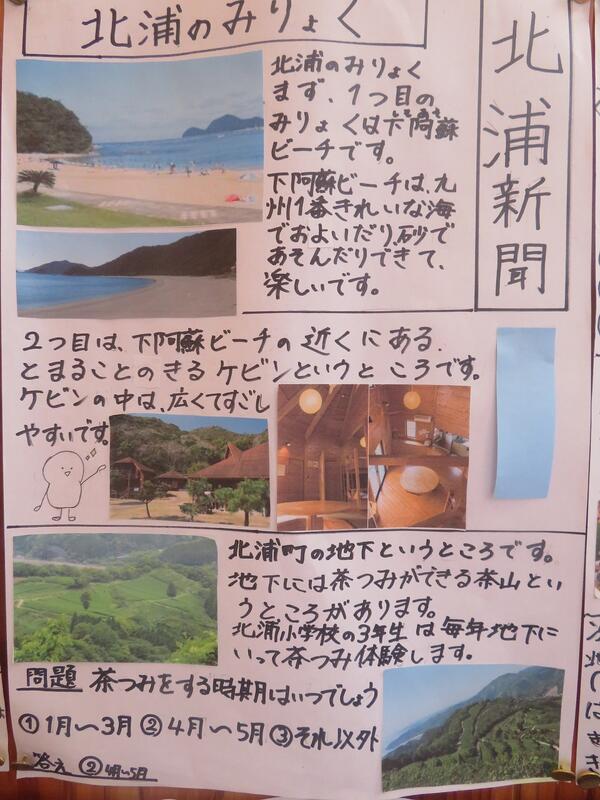 北浦新聞
北浦のみりょく
北浦のみりょく
まず、1つ目の
みりょくは下阿蘇
ビーチです。
下阿蘇ビーチは、九
州1番きれいな海
でおよいだり、砂で
あそんだりできて、
楽しいです。
2つ目は、下阿蘇ビーチの近くにある
とまることのきるケビンというところです。
ケビンの中は、広くてすごし
やすいです。
北浦町の地下というところです。
地下には茶つみができる茶山とい
うところがあります。
北浦小学校の3年生は毎年地下に
いって茶つみ体験します。
問題 茶つみをする時期はいつでしょう
①1月〜3月②4月〜5月③それ以外
答え ②4月〜5月